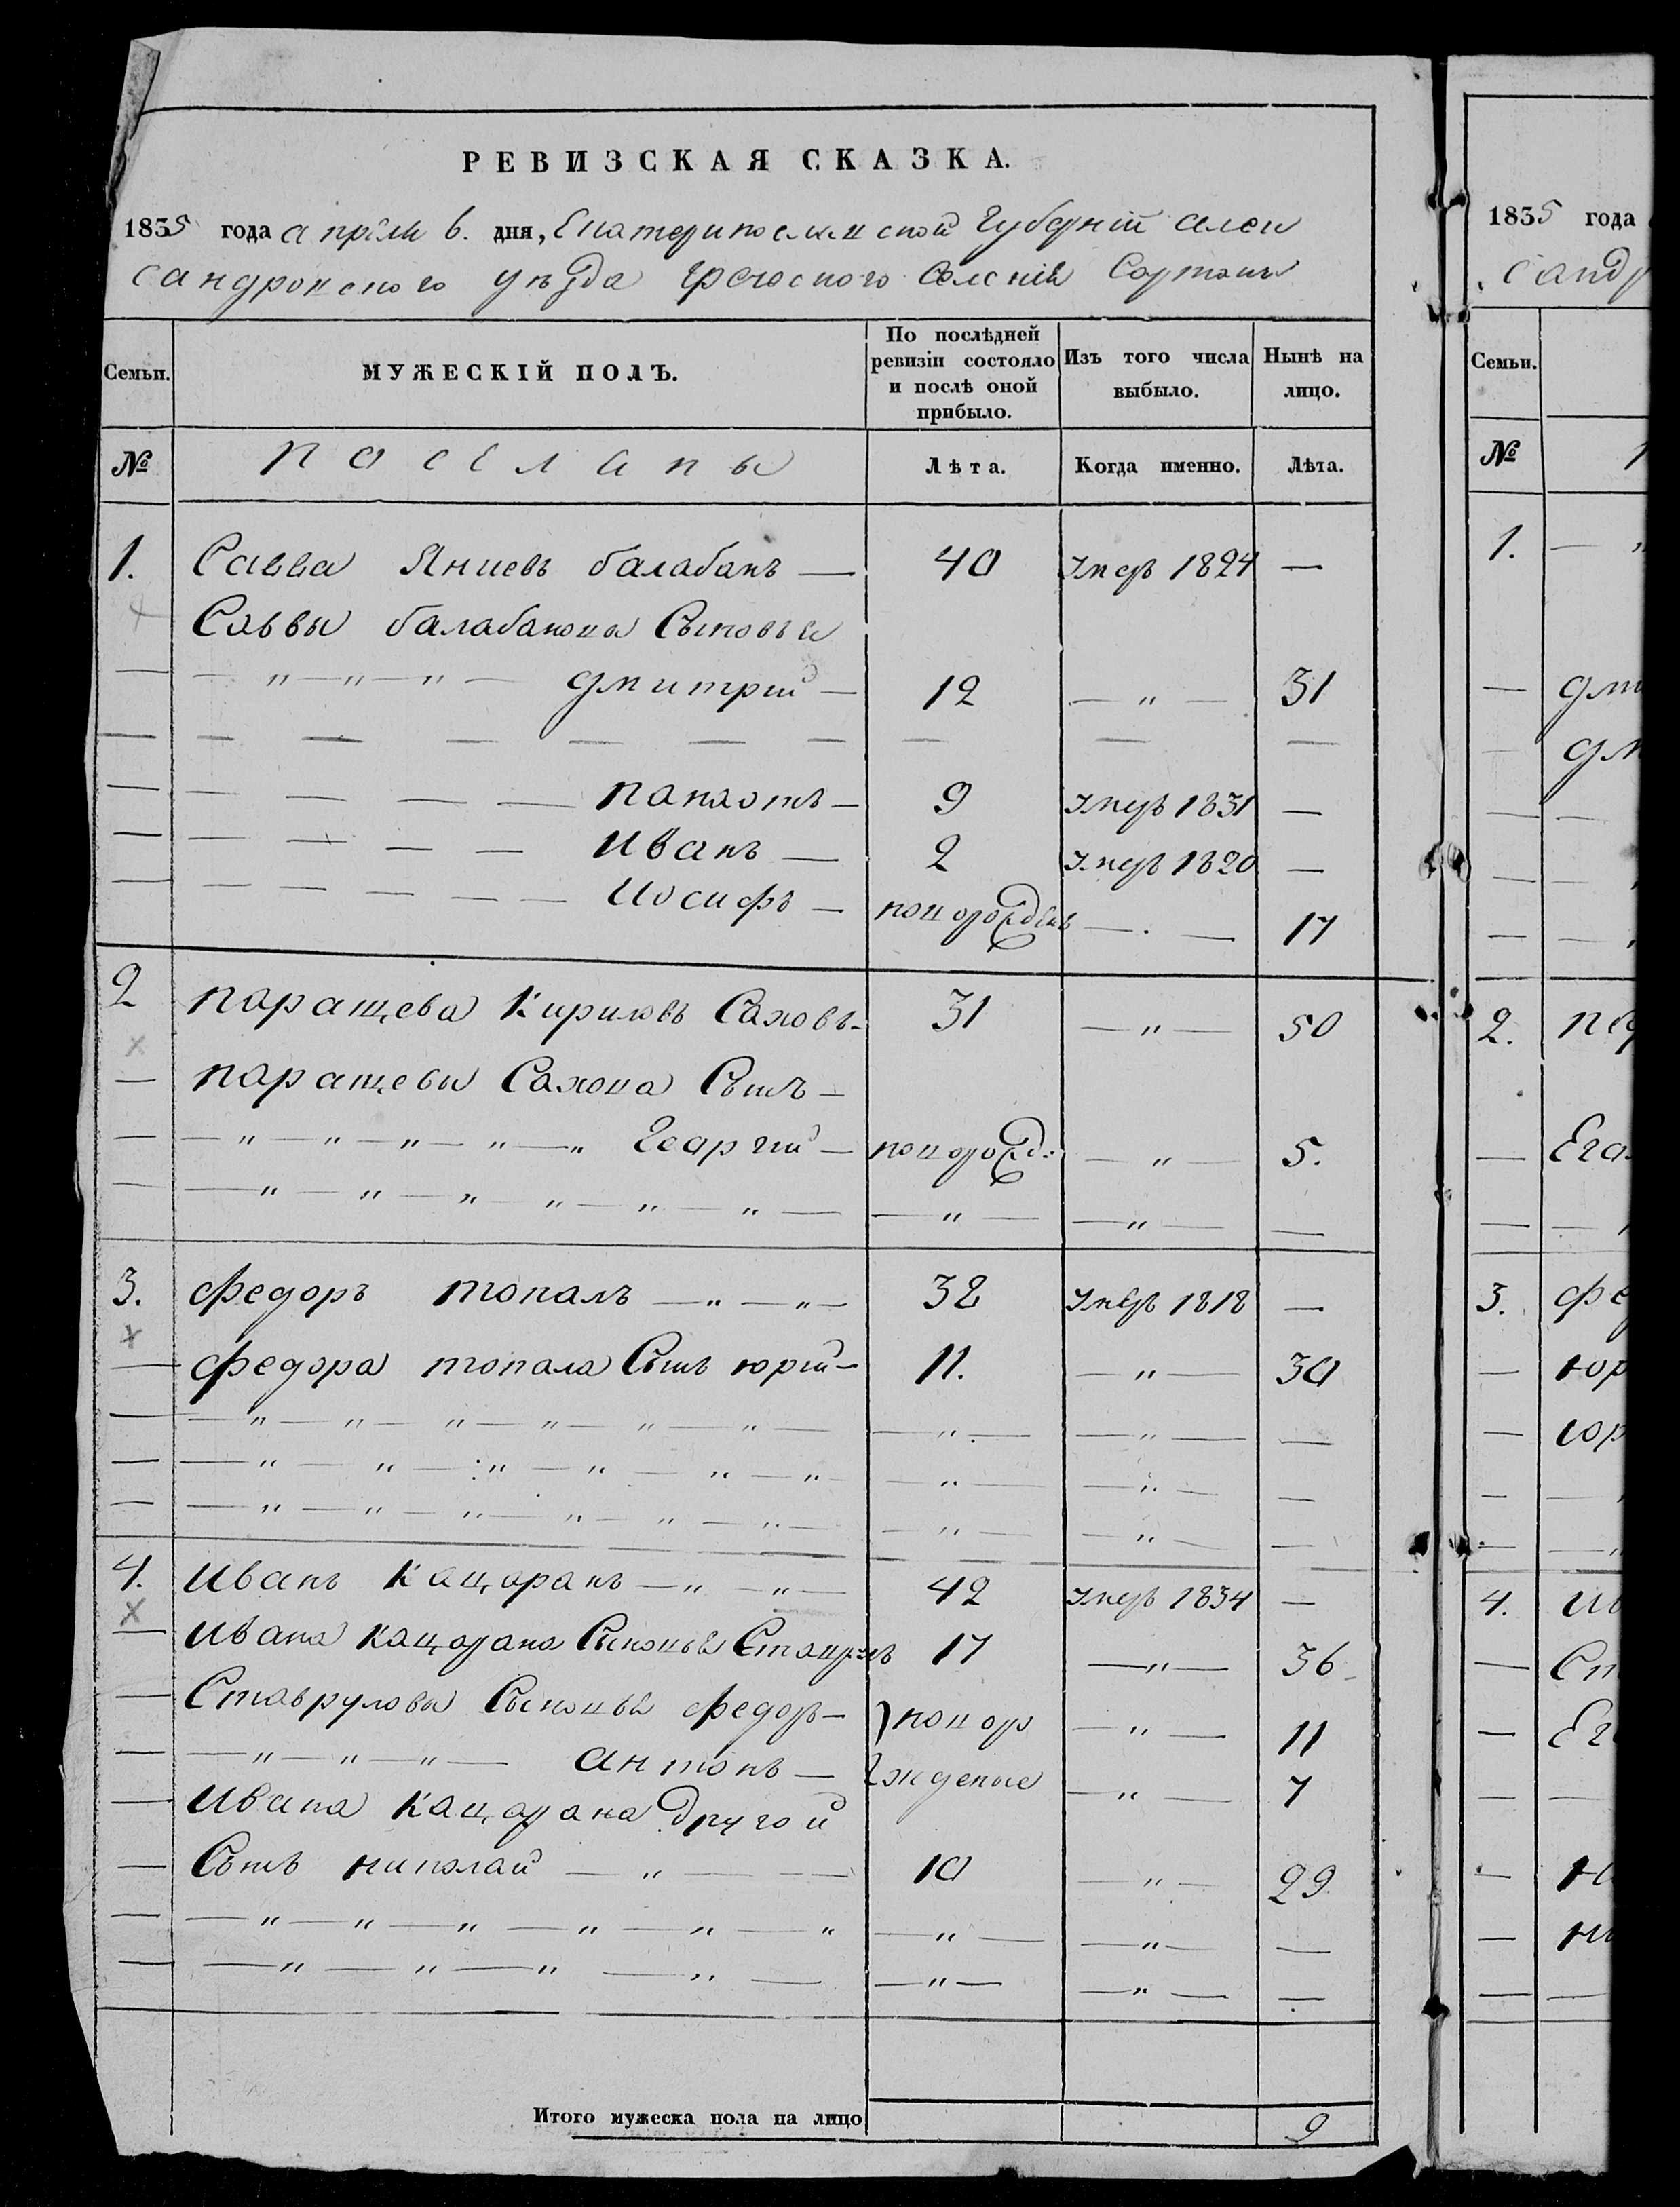 РЕВИЗСКАЯ СКАЗКА.
1835 года апреля 6. дня, Екатеринославской Губерній Алек
сандровского уѣзда Греческого Селенія Сартаны
Семьи. МУЖЕСКІЙ ПОЛЪ. По послѣдней ревизіи состояло и послѣ оной прибыло. Изъ того числа выбыло. Нынѣ на лицо.
№ Поселяны Лѣта. Когда именно. Лѣта.
1. Савва Яниевъ балабанъ — 40 Умеръ 1824 —
Саввы балабанова Сыновья
— " — " — " — дмитрий — 12 — " — 31
— — — — панаотъ — 9 Умеръ 1831 —
— — — — — Иванъ — 2 Умеръ 1820 —
— — — — — Иосифъ — новорожденъ — . — 17
2 паращева Кириловъ Саховъ — 31 — " — 50
— паращевы Сахова Сынъ —
— " — " — " — " — " Георгий — новорожд: — " — 5.
— " — " — " — " — " — " — — " — — " — —
3. федоръ топалъ — " — " — 32 Умеръ 1818 —
— федора топала Сынъ юрий — 11. — " — 30
— " — " — " — " — " — " — — " — — " — —
— " — " — " — " — " — " — — " — — " — —
— " — " — " — " — " — " — — " — — " — —
4. Иванъ Кацаранъ — " — " — 42 Умеръ 1834 —
— Ивана Кацарана Сыновья Ставрулъ 17 — " — 36
— Ставруловы Сыновья федоръ — новоро — " — 11
— " — " — " — антонъ — ждение — " — 7
— Ивана Кацарана другой
— Сынъ николай — " — — 10 — " — 29
— " — " — " — " — " — " — " — — " — —
— " — " — " — " — — " — — " — —
Итого мужеска пола на лицо 9
1835 года
сандр
Семьи.
№
1. — "
дми
дм
2. пар
Его
3. фе
юр
юр
4. Ив
Ст
Ег
ни